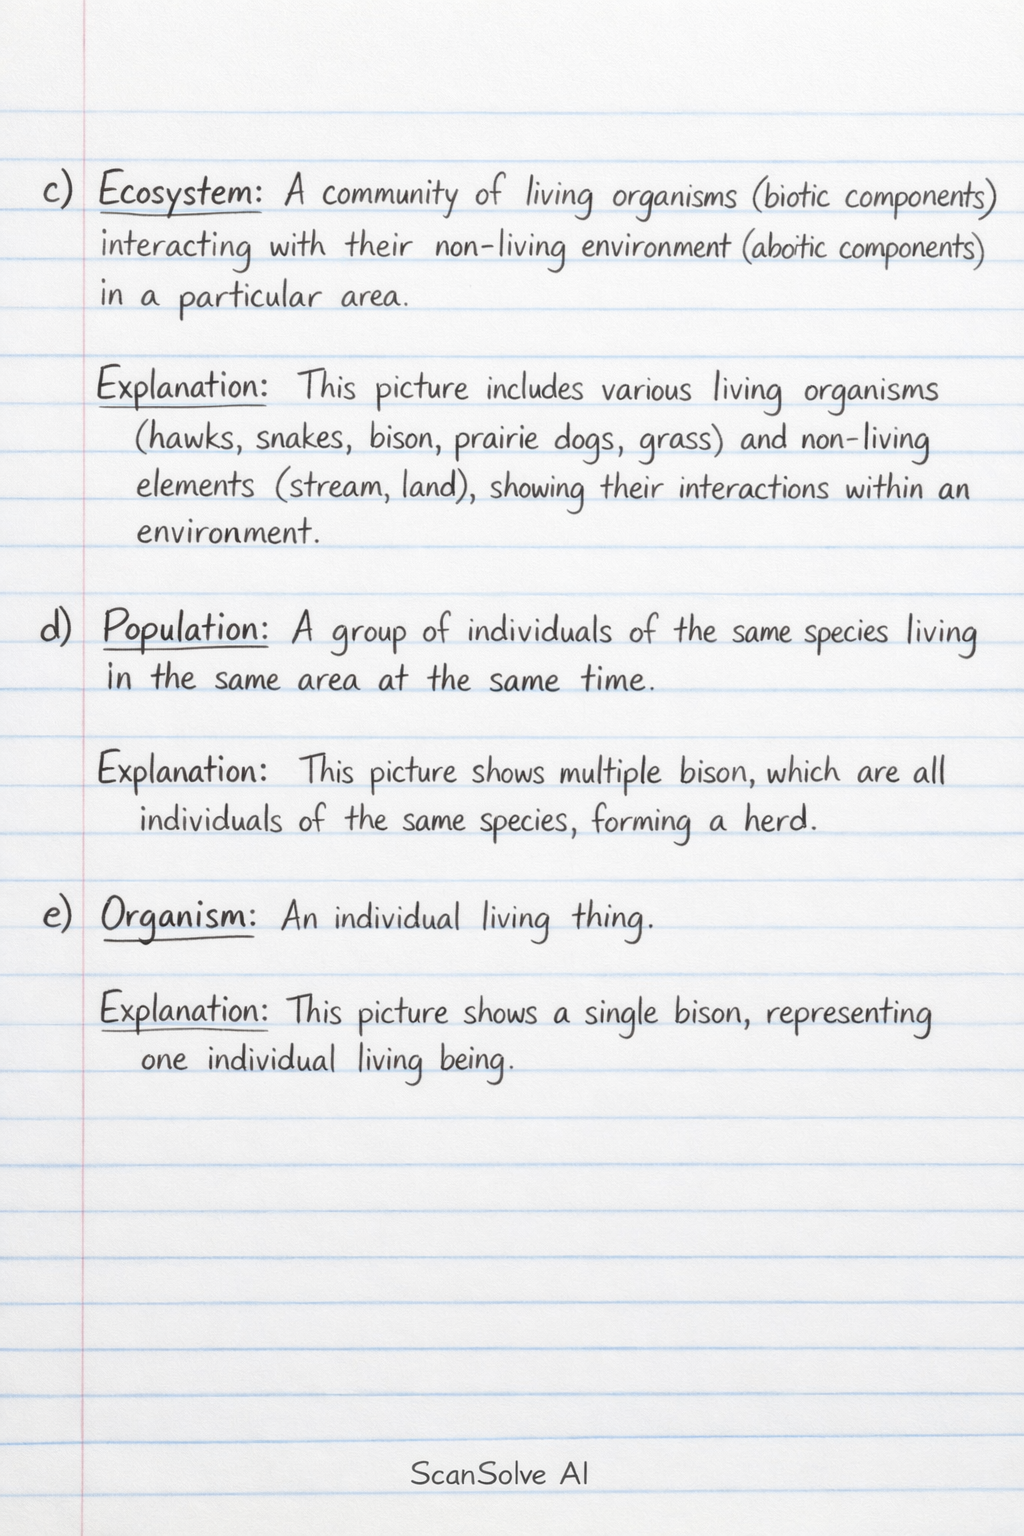 c) Ecosystem: A community of living organisms (biotic components)
interacting with their non-living environment (aboitic components)
in a particular area.
Explanation: This picture includes various living organisms
(hawks, snakes, bison, prairie dogs, grass) and non-living
elements (stream, land), showing their interactions within an
environment.
d) Population: A group of individuals of the same species living
in the same area at the same time.
Explanation: This picture shows multiple bison, which are all
individuals of the same species, forming a herd.
e) Organism: An individual living thing.
Explanation: This picture shows a single bison, representing
one individual living being.
ScanSolve AI